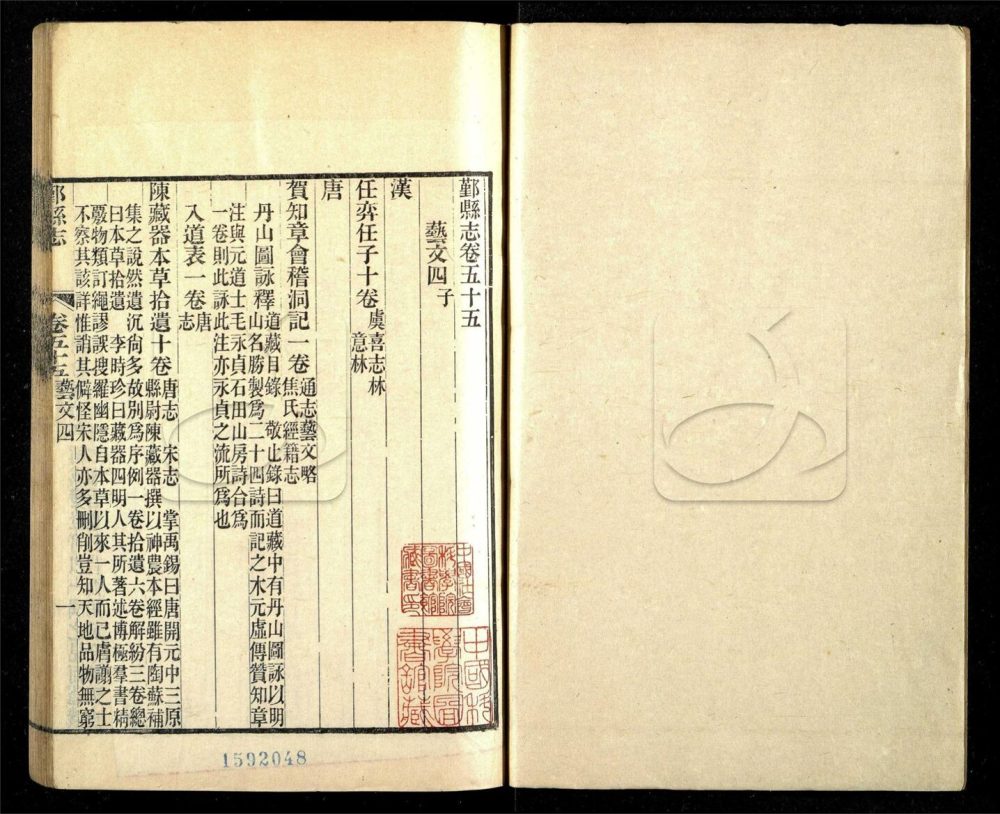 鄞縣志卷五十五
藝文四子
漢
任弈任子十卷虞喜志林
意林
唐
賀知章會稽洞記一卷通志藝文略
焦氏經籍志
丹山圖詠釋道藏目錄 敬止錄曰道藏中有丹山圖詠以明
山名勝製爲二十四詩而記之木元虛傳贊知章
注與元道士毛永貞石田山房詩合爲
一卷則此詠此注亦永貞之流所爲也
入道表一卷唐
志
陳藏器本草拾遺十卷唐志 宋志 掌禹錫曰唐開元中三原
縣尉陳藏器撰以神農本經雖有陶蘇補
集之說然遺沉尙多故別爲序例一卷拾遺六卷解紛三卷總
曰本草拾遺 李時珍曰藏器四明人其所著述博極羣書精
覈物類訂繩謬誤搜羅幽隱自本草以來一人而已膚譾之士
不察其該詳惟誚其僻怪宋人亦多刪削豈知天地品物無窮
鄞縣志
卷五十五藝文四
一
1592048
中國科學院圖書館藏